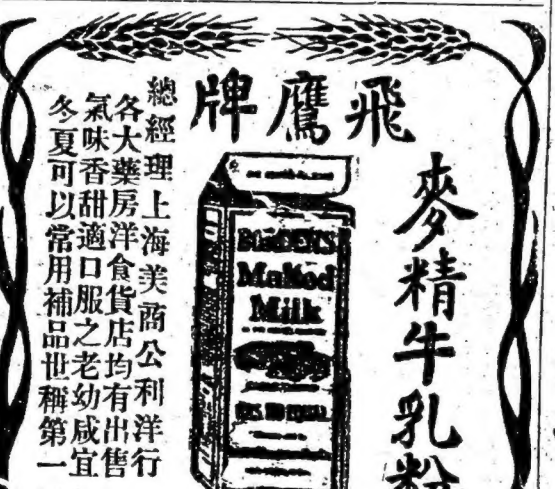 飛鷹牌
麥精牛乳粉
Malted
Milk
總經理上海美商公利洋行
各大藥房洋食貨店均有出售
氣味香甜適口服之老幼咸宜
冬夏可以常用補品世稱第一